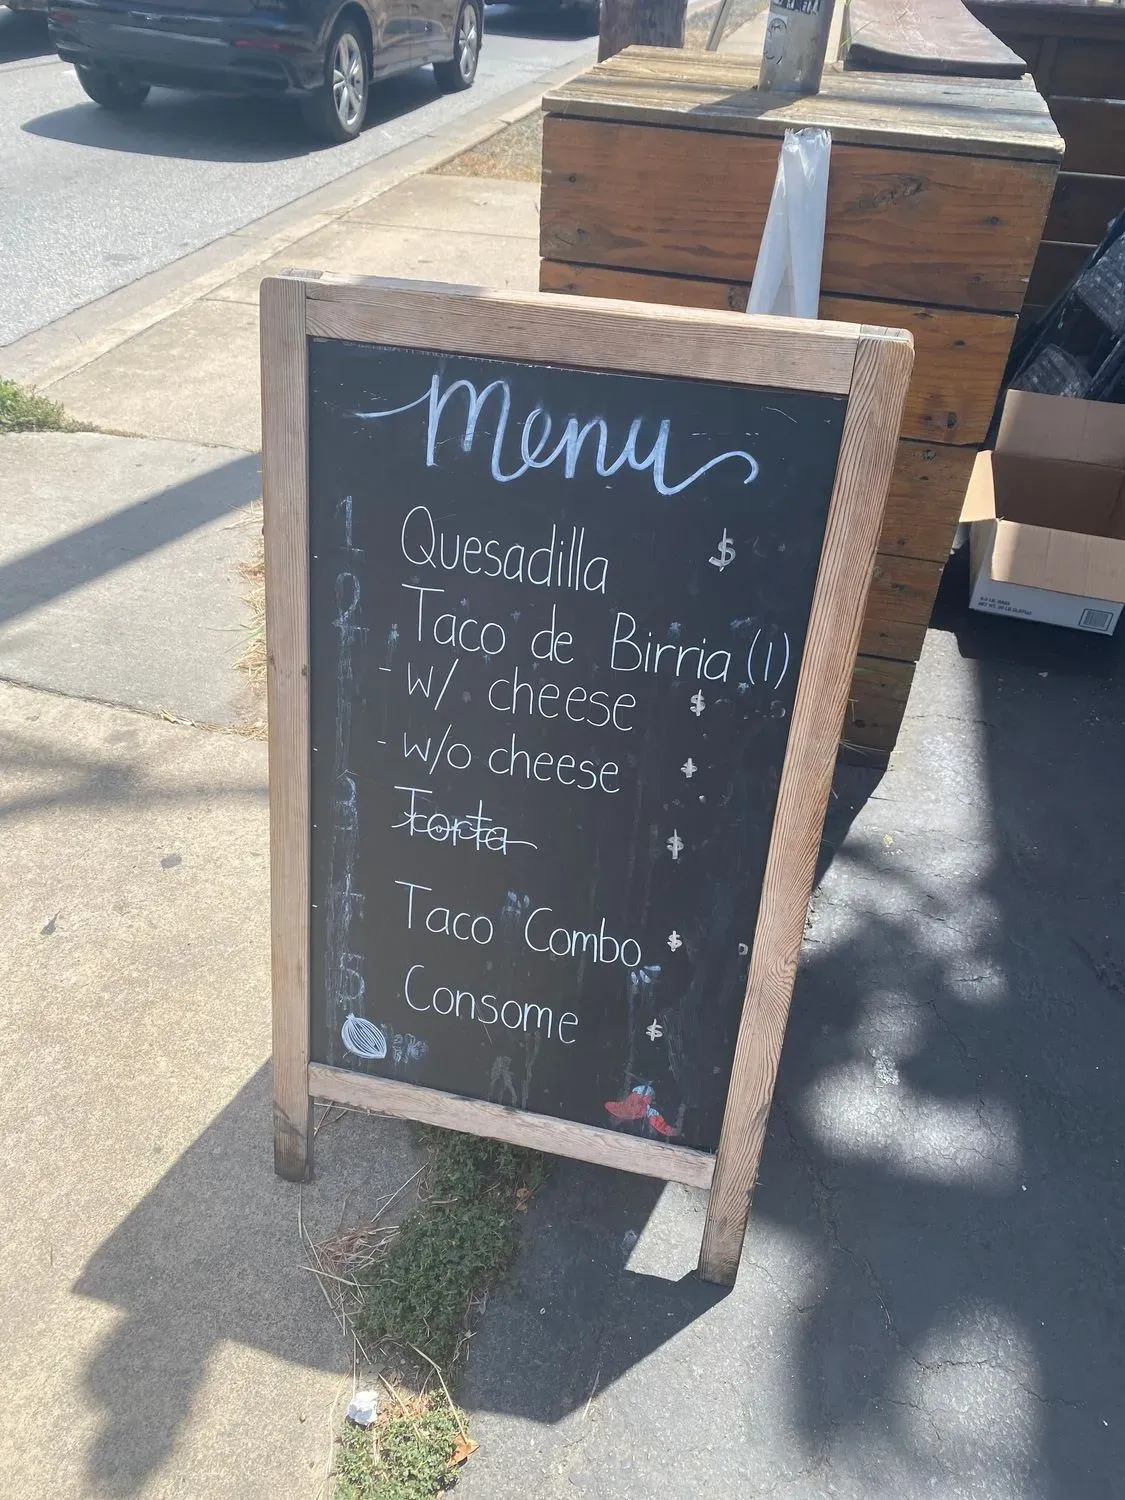 Menu
1 Quesadilla $
2 Taco de Birria (1)
- w/ cheese $
- w/o cheese $
3 Torta $
Taco Combo $
5 Consome $